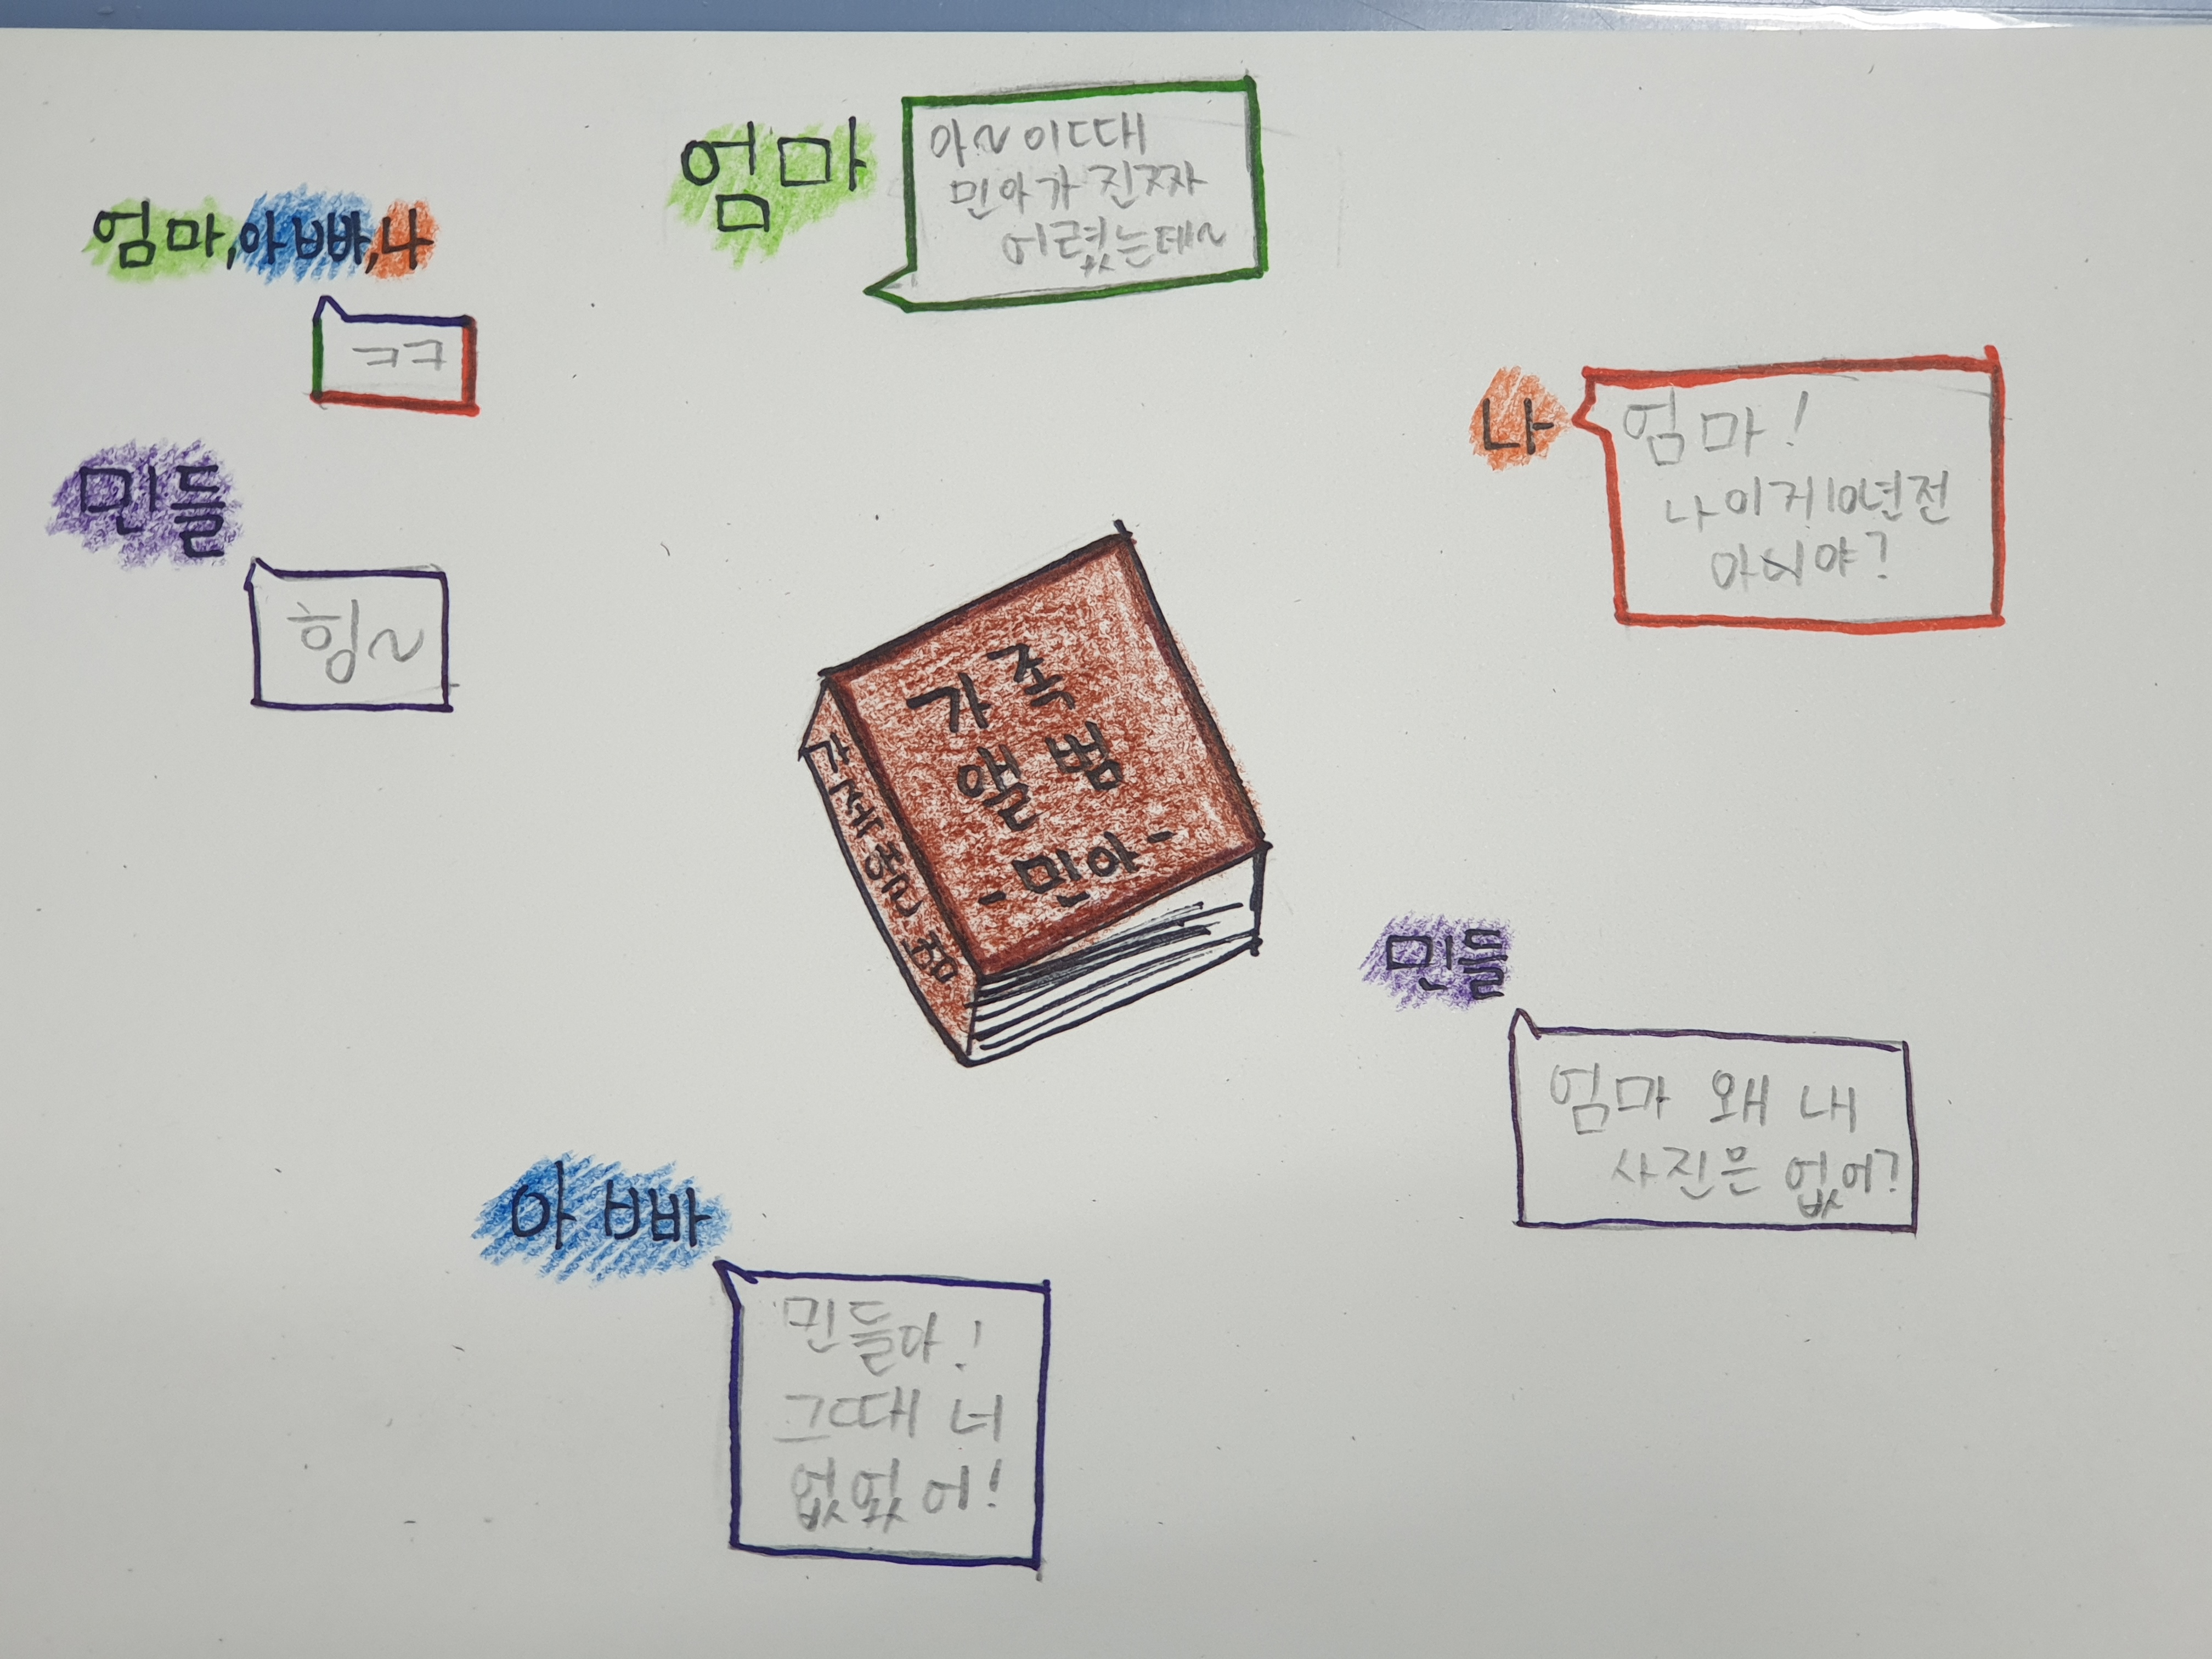 엄마
아~ 이때
민아가 진짜
어렸는데~
나
엄마!
나 이거 10년전
아니야?
민들
엄마 왜 내
사진은 없어?
아빠
민들아!
그때 너
없었어!
민들
힝~
엄마, 아빠, 나
ㅋㅋ
가족
앨범
-민아-